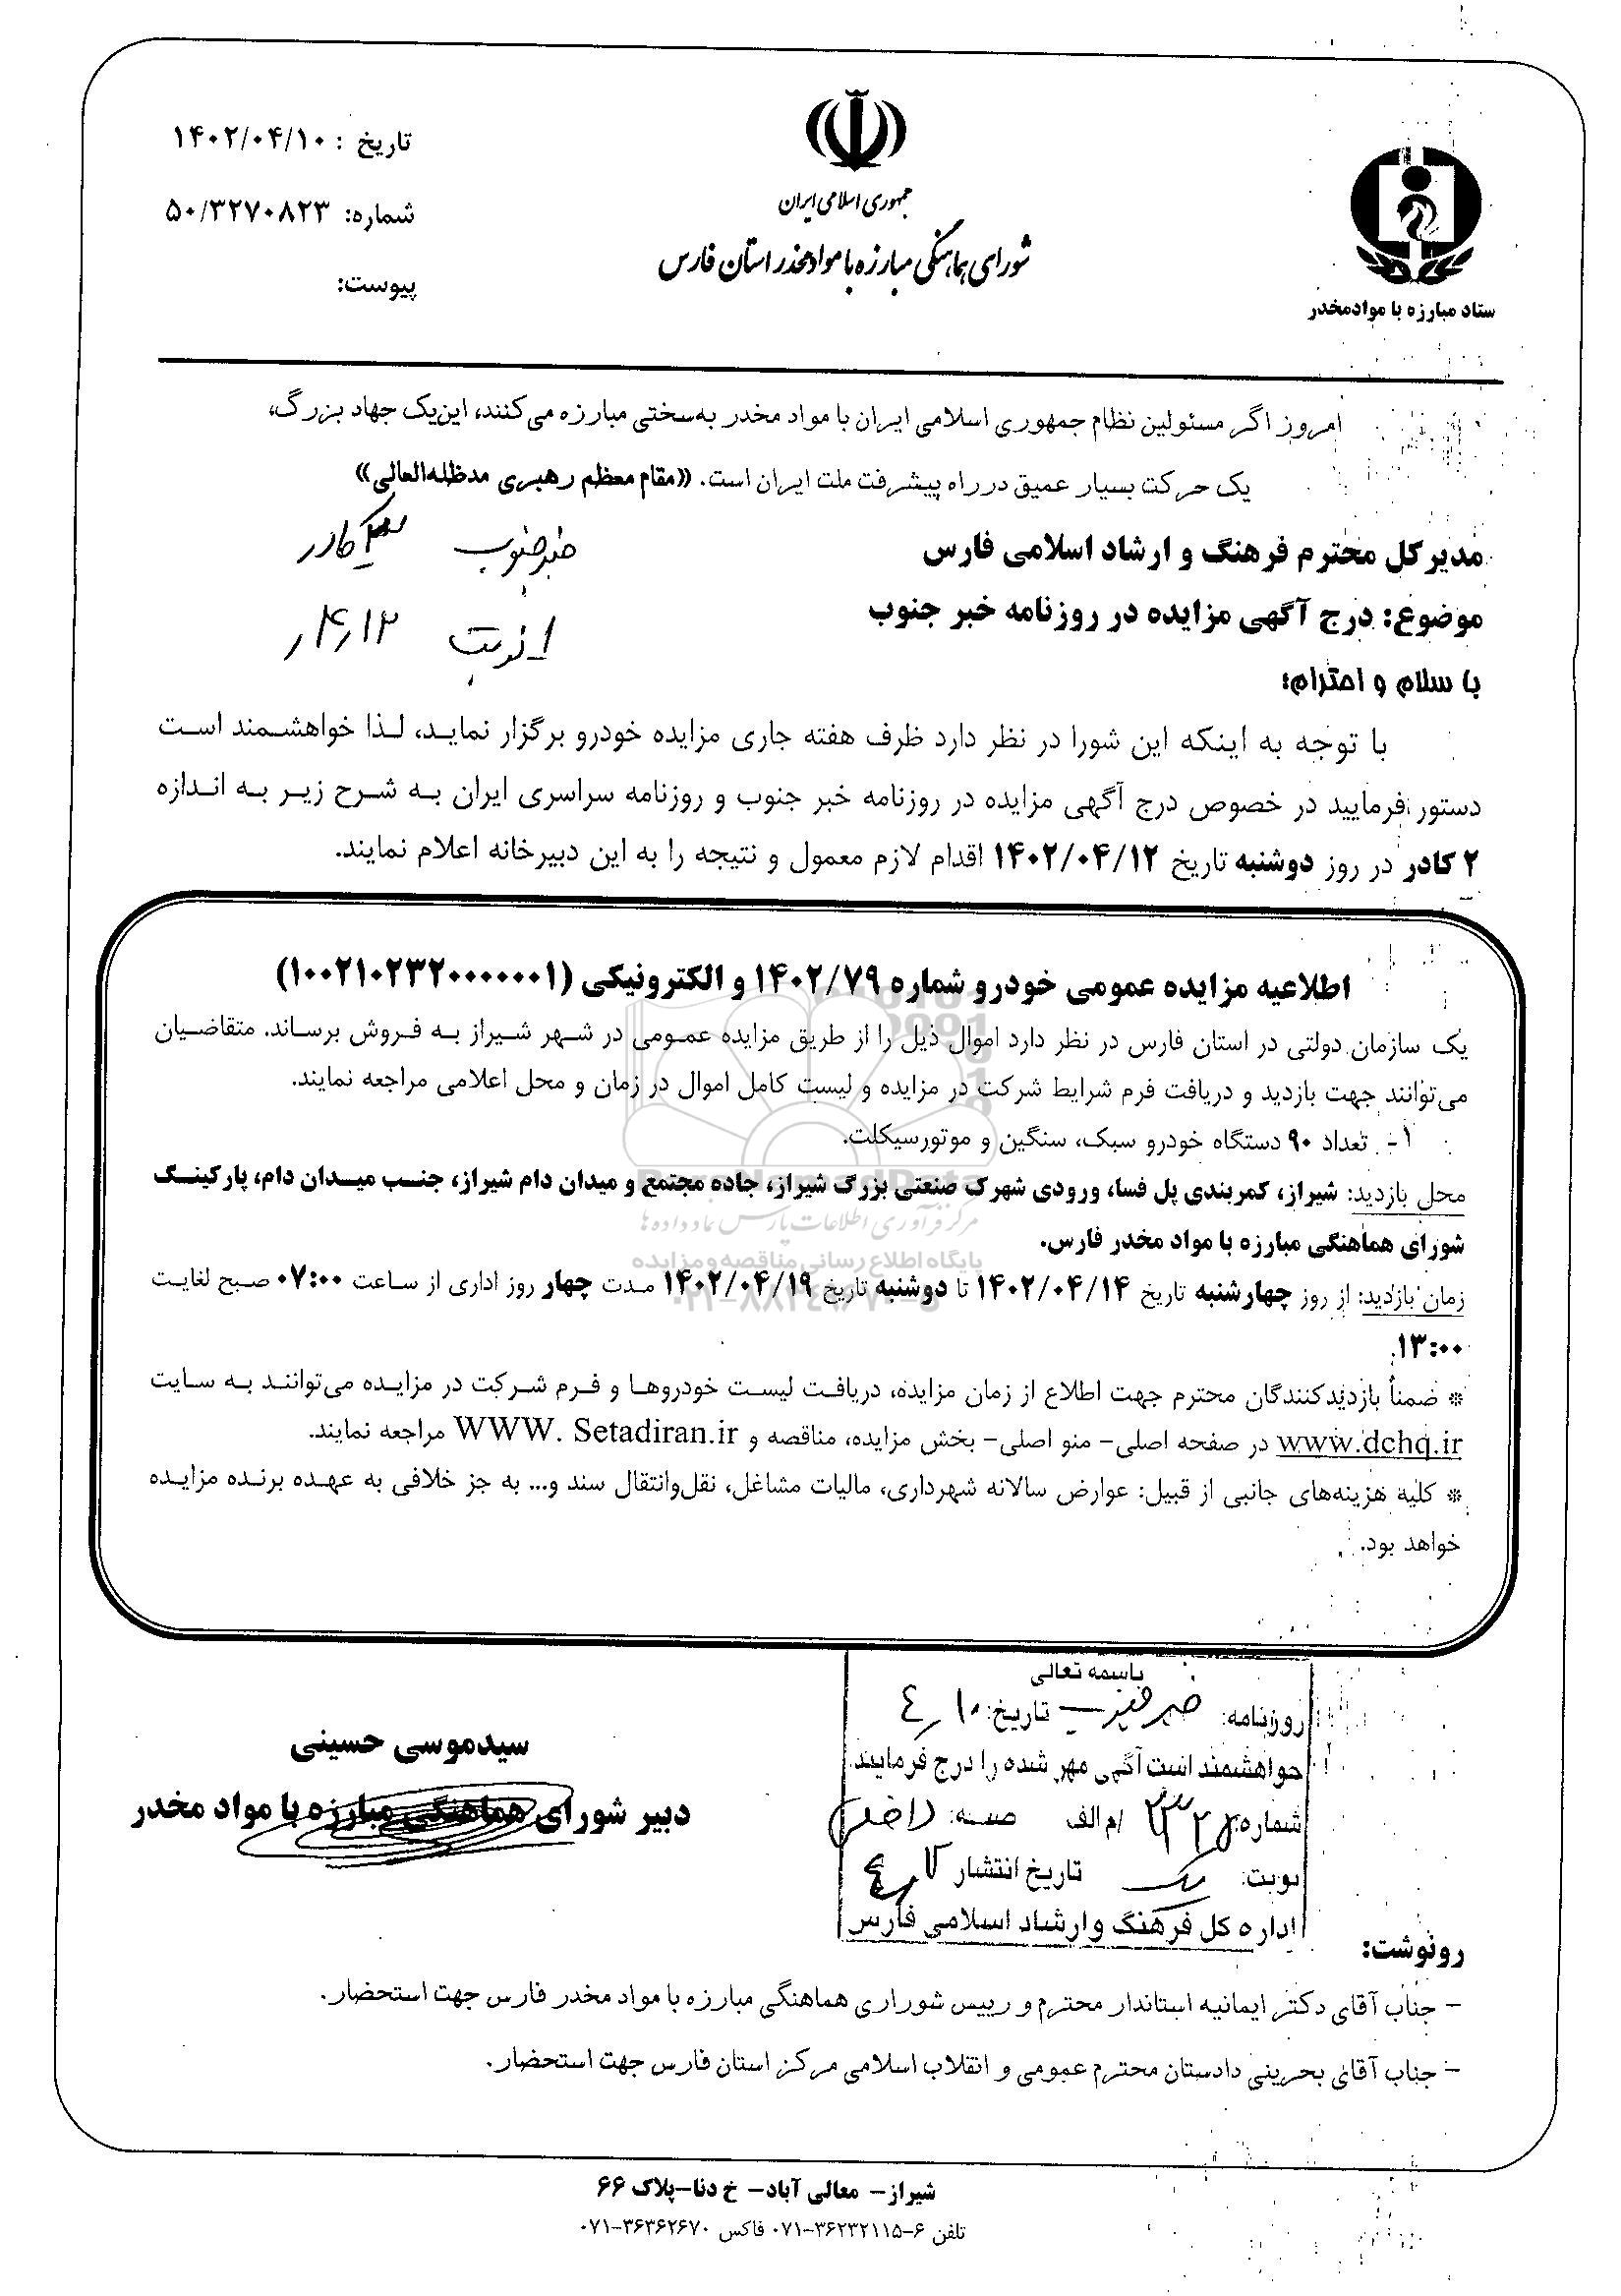 تاریخ : ۱۴۰۲/۰۴/۱۰
شماره: ۵۰/۳۲۷۰۸۲۳
پیوست:
جمهوری اسلامی ایران
شورای هماهنگی مبارزه با مواد مخدر استان فارس
ستاد مبارزه با موادمخدر
امروز اگر مسئولین نظام جمهوری اسلامی ایران با مواد مخدر به‌سختی مبارزه می‌کنند، این‌یک جهاد بزرگ،
یک حرکت بسیار عمیق در راه پیشرفت ملت ایران است. «مقام معظم رهبری مدظله‌العالی»
مدیرکل محترم فرهنگ و ارشاد اسلامی فارس
خبر جنوب کادر
موضوع: درج آگهی مزایده در روزنامه خبر جنوب
۴/۱۲
با سلام و احترام؛
با توجه به اینکه این شورا در نظر دارد ظرف هفته جاری مزایده خودرو برگزار نماید، لذا خواهشمند است
دستور فرمایید در خصوص درج آگهی مزایده در روزنامه خبر جنوب و روزنامه سراسری ایران به شرح زیر به اندازه
۲ کادر در روز دوشنبه تاریخ ۱۴۰۲/۰۴/۱۲ اقدام لازم معمول و نتیجه را به این دبیرخانه اعلام نمایند.
اطلاعیه مزایده عمومی خودرو شماره ۱۴۰۲/۷۹ و الکترونیکی (۱۰۰۲۱۰۲۳۲۰۰۰۰۰۰۱)
یک سازمان دولتی در استان فارس در نظر دارد اموال ذیل را از طریق مزایده عمومی در شهر شیراز به فروش برساند. متقاضیان
می‌توانند جهت بازدید و دریافت فرم شرایط شرکت در مزایده و لیست کامل اموال در زمان و محل اعلامی مراجعه نمایند.
۱- تعداد ۹۰ دستگاه خودرو سبک، سنگین و موتورسیکلت.
محل بازدید: شیراز، کمربندی پل فسا، ورودی شهرک صنعتی بزرگ شیراز، جاده مجتمع و میدان دام شیراز، جنب میدان دام، پارکینگ
مرکز فرآوری اطلاعات پارس نماد داده ها
شورای هماهنگی مبارزه با مواد مخدر فارس.
پایگاه اطلاع رسانی مناقصه و مزایده
زمان بازدید: از روز چهارشنبه تاریخ ۱۴۰۲/۰۴/۱۴ تا دوشنبه تاریخ ۱۴۰۲/۰۴/۱۹ مدت چهار روز اداری از ساعت ۰۷:۰۰ صبح لغایت
۱۳:۰۰.
* ضمناً بازدیدکنندگان محترم جهت اطلاع از زمان مزایده، دریافت لیست خودروها و فرم شرکت در مزایده می‌توانند به سایت
www.dchq.ir در صفحه اصلی- منو اصلی- بخش مزایده، مناقصه و WWW. Setadiran.ir مراجعه نمایند.
* کلیه هزینه‌های جانبی از قبیل: عوارض سالانه شهرداری، مالیات مشاغل، نقل‌وانتقال سند و... به جز خلافی به عهده برنده مزایده
خواهد بود.
باسمه تعالی
روزنامه: خبر جنوب تاریخ: ۴/۱۰
خواهشمند است آگهی مهر شده را درج فرمایید
شماره: /م الف
نوبت: یک تاریخ انتشار
اداره کل فرهنگ و ارشاد اسلامی فارس
سیدموسی حسینی
دبیر شورای هماهنگی مبارزه با مواد مخدر
رونوشت:
- جناب آقای دکتر ایمانیه استاندار محترم و رییس شوراری هماهنگی مبارزه با مواد مخدر فارس جهت استحضار.
- جناب آقای بحرینی دادستان محترم عمومی و انقلاب اسلامی مرکز استان فارس جهت استحضار.
شیراز- معالی آباد- خ دنا-پلاک ۶۶
تلفن ۶-۳۶۲۳۲۱۱۵-۰۷۱ فاکس ۳۶۳۶۲۶۷۰-۰۷۱